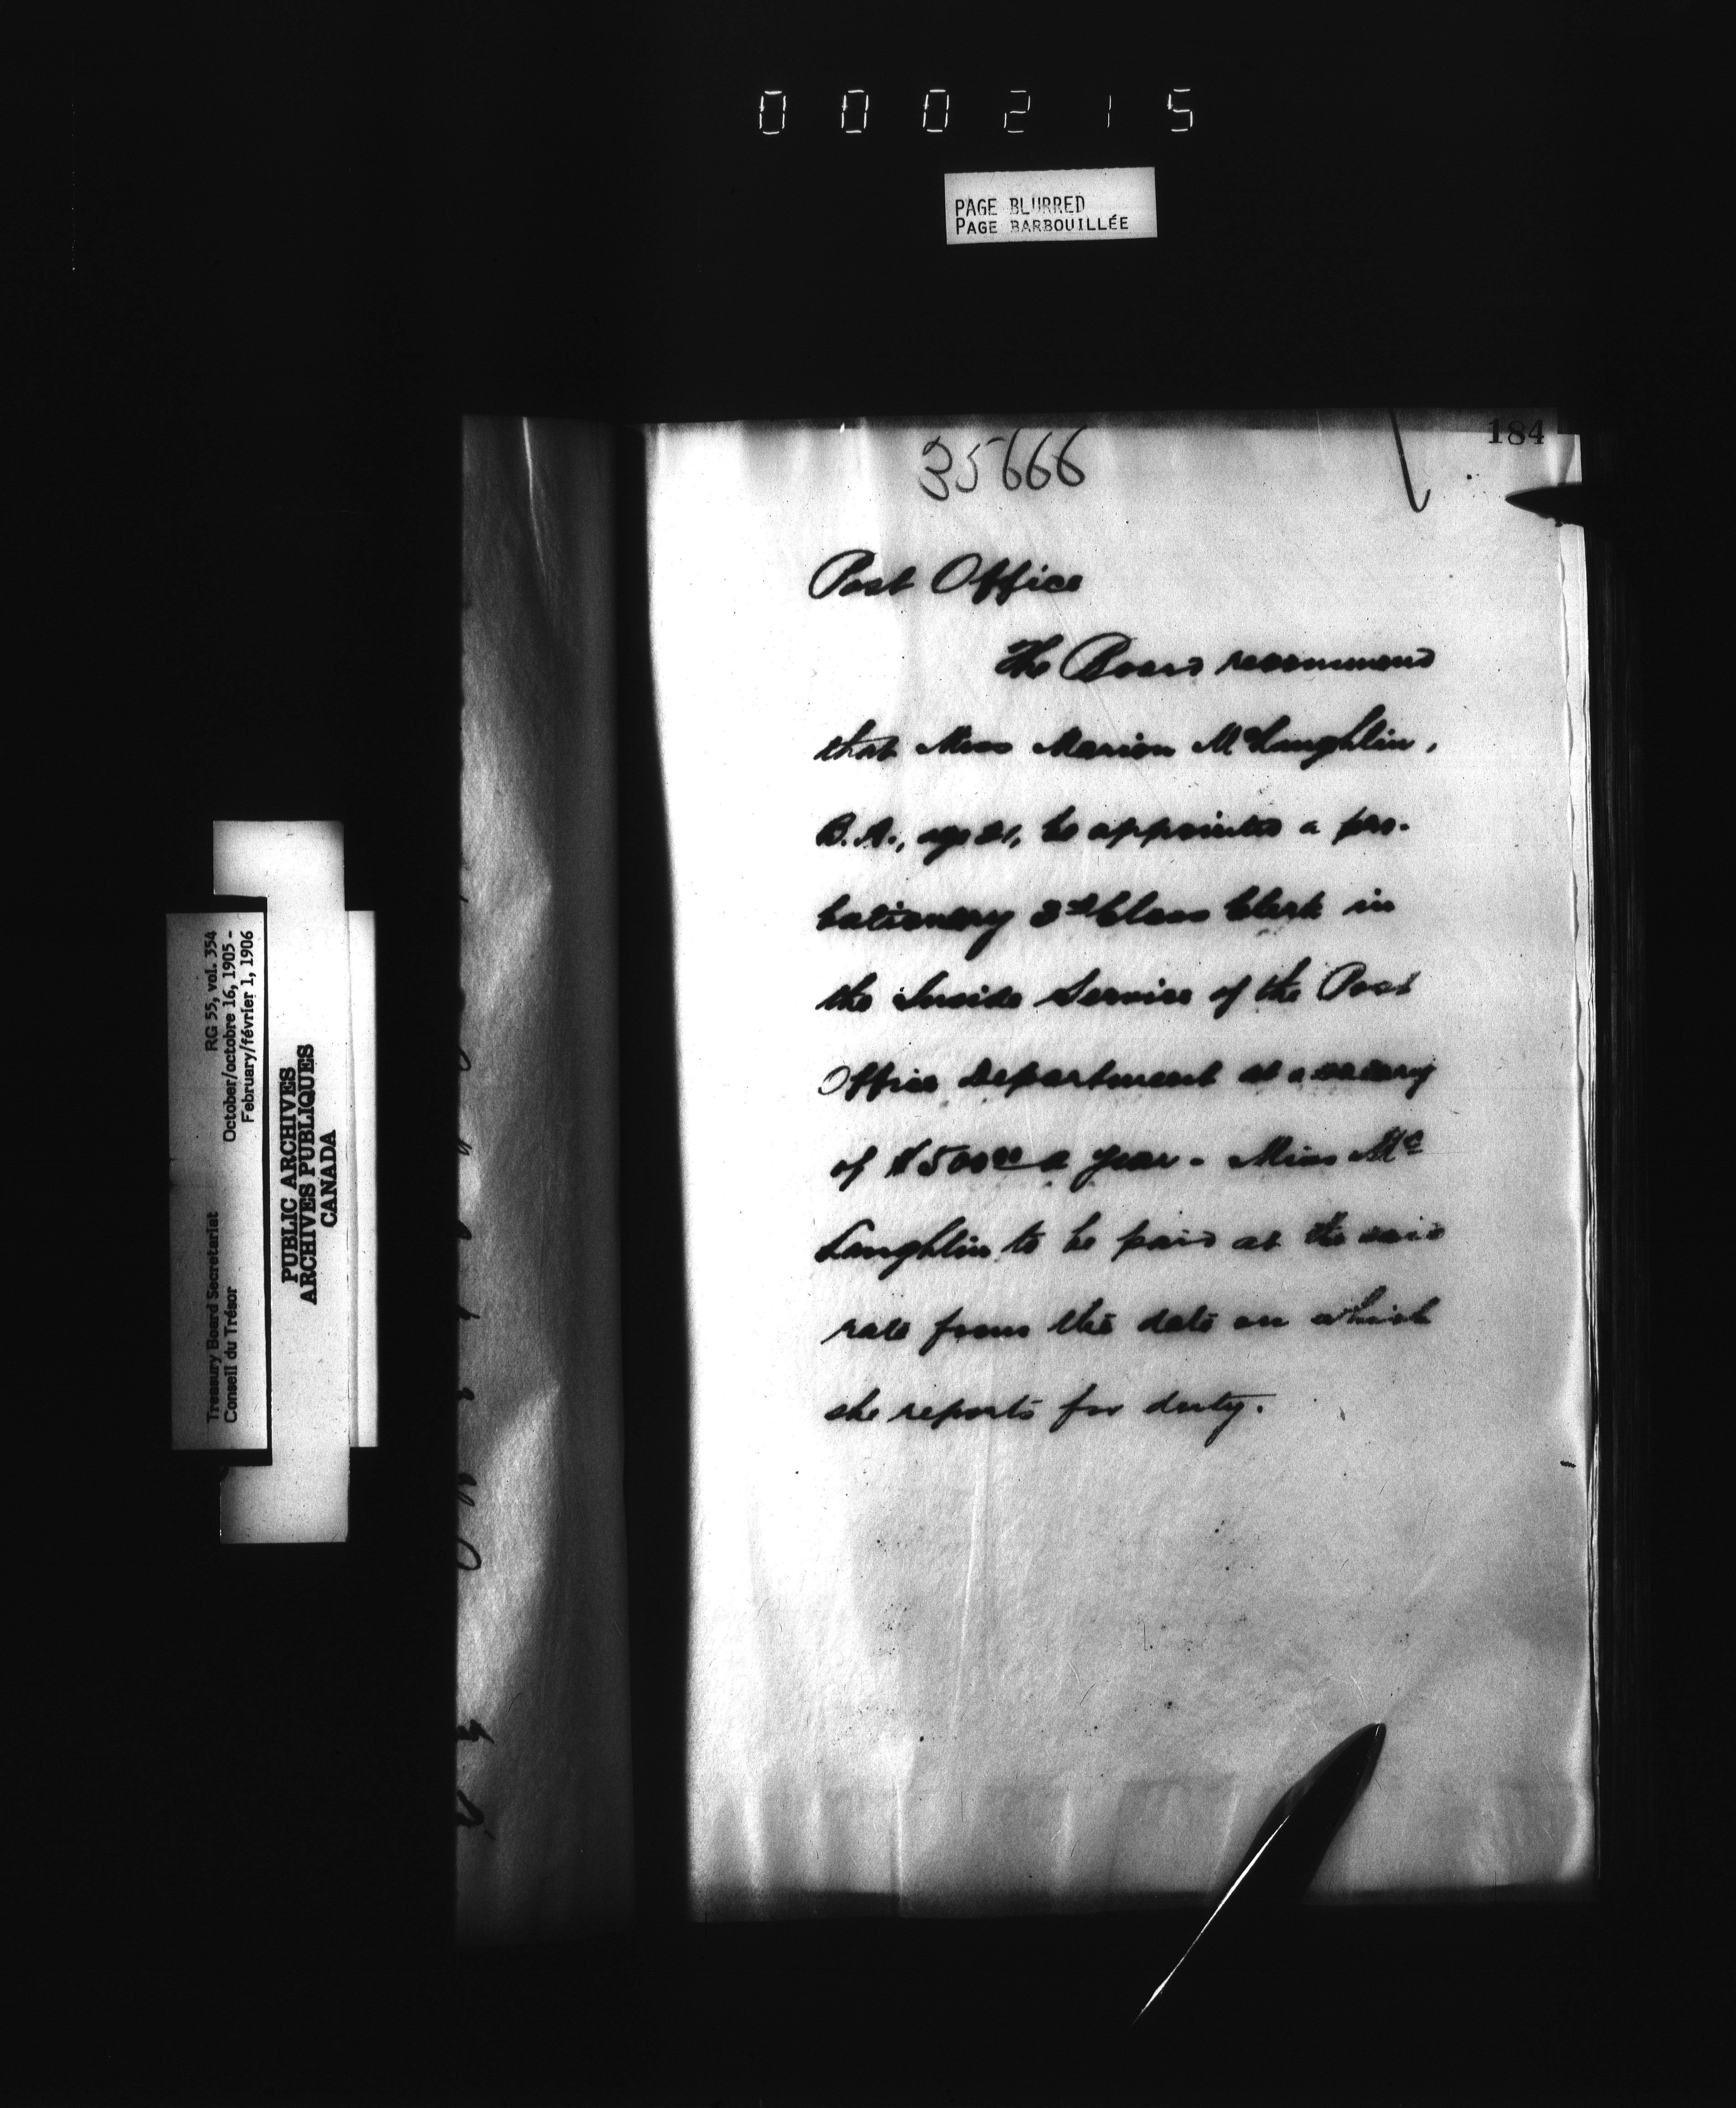 000215
PAGE BLURRED
PAGE BARBOUILLÉE
184
35666
Post Office
The Board recommend
that Miss Marion McLaughlin,
B.A., age 21, be appointed a pro-
bationary 3rd Class Clerk in
the Inside Service of the Post
Office Department at a salary
of $500 00 a year. Miss Mc
Laughlin to be paid at the said
rate from the date on which
she reports for duty.
Treasury Board Secretariat
Conseil du Trésor
RG 55, vol. 354
October/octobre 16, 1905 -
February/février 1, 1906
PUBLIC ARCHIVES
ARCHIVES PUBLIQUES
CANADA